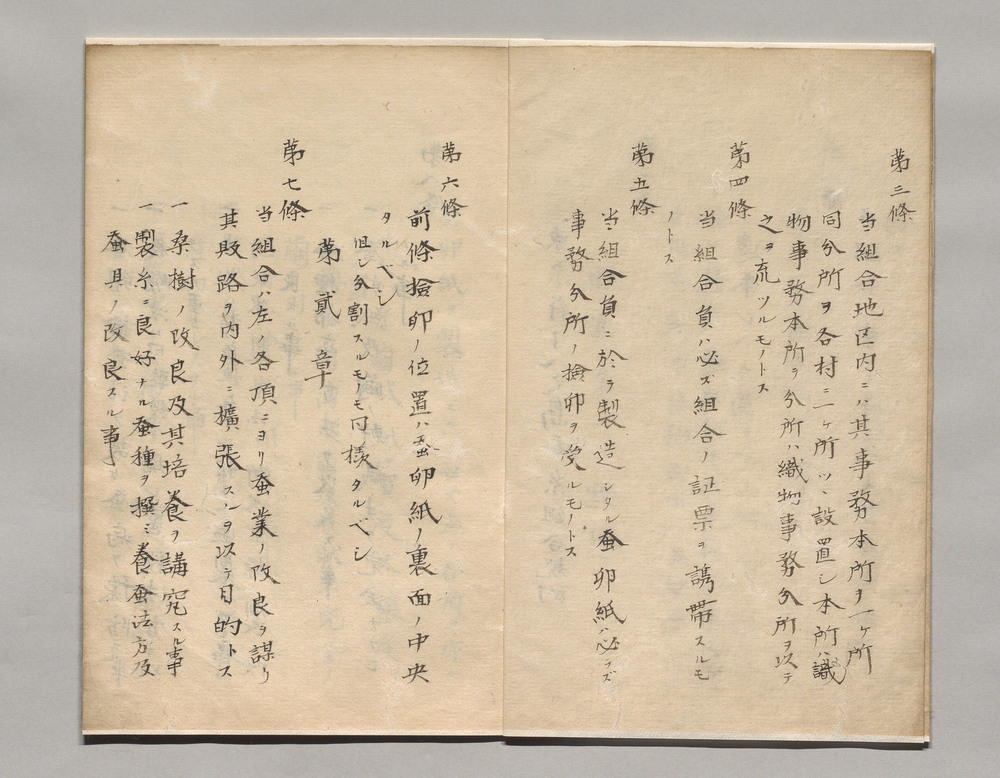 第三條
当組合地区内ニハ其事務本所ヲ一ヶ所
同分所ヲ各村ニ一ヶ所ツヽ設置シ本所ハ織
物事務本所ヲ分所ハ織物事務分所ヲ以テ
之ヲ充ツルモノトス
第四條
当組合員ハ必ズ組合ノ証票ヲ携帯スルモ
ノトス
第五條
当組合員ニ於テ製造シタル蚕卵紙ハ必ラズ
事務分所ノ撿卵ヲ受ルモノトス
第六條
前條撿卵ノ位置ハ蚕卵紙ノ裏面ノ中央
タルベシ
但シ分割スルモノモ同様タルベシ
第貳章
第七條
当組合ハ左ノ各項ニヨリ蚕業ノ改良ヲ謀リ
其販路ヲ内外ニ擴張スルヲ以テ目的トス
一桑樹ノ改良及其培養ヲ講究スル事
一製糸ニ良好ナル蚕種ヲ撰ミ養蚕法方及
蚕具ノ改良スル事